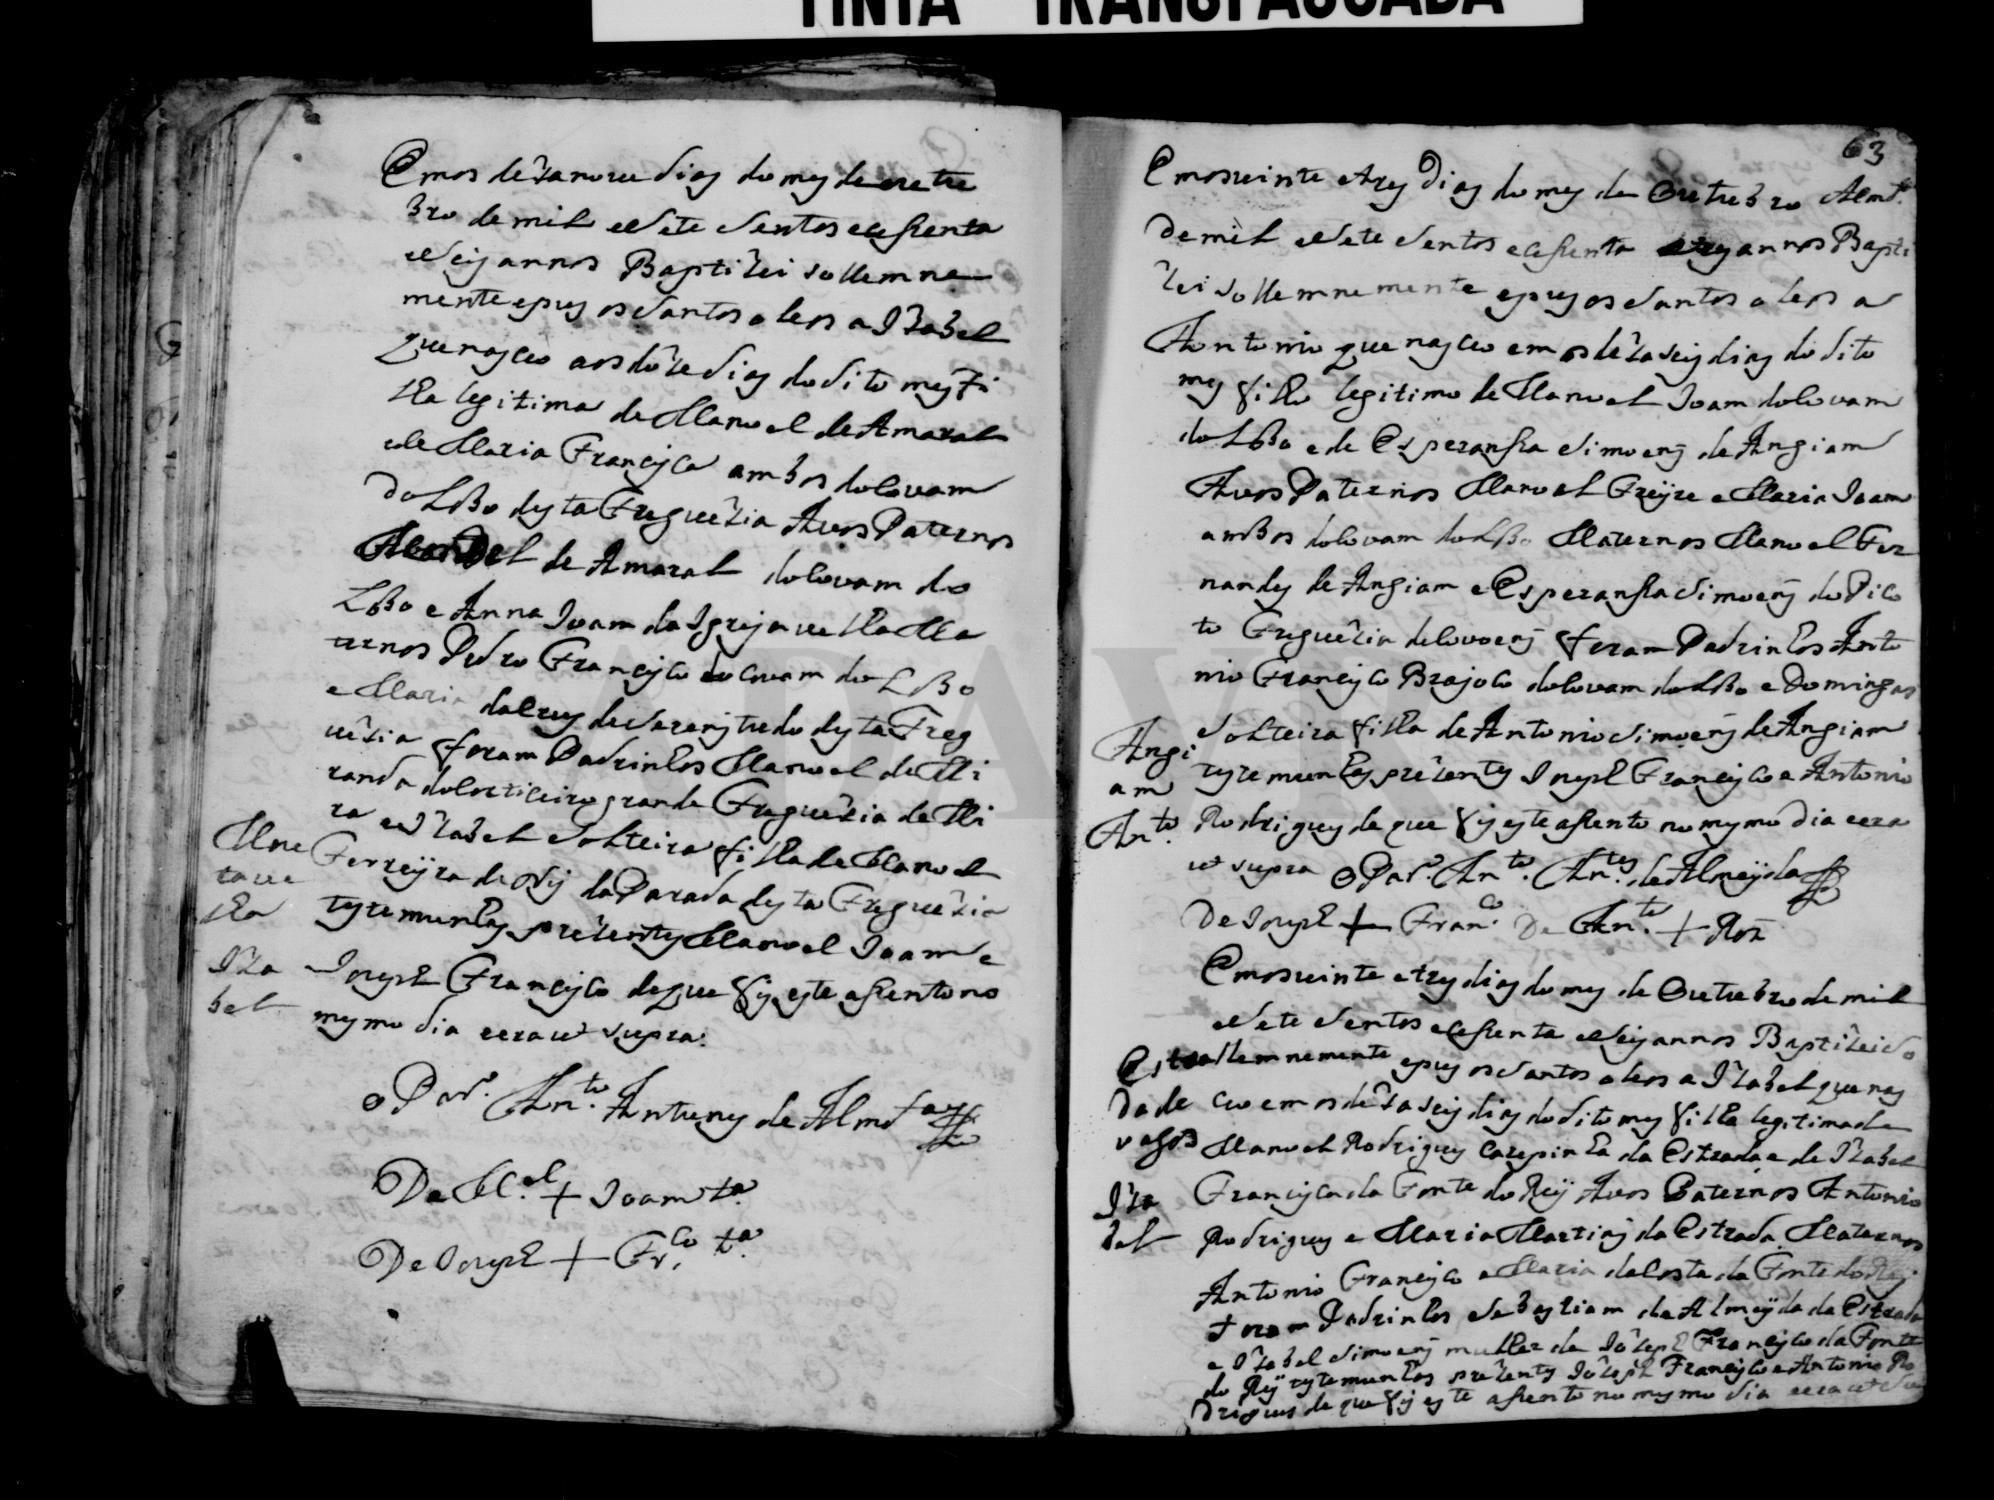 TINTA TRANSPASSADA
Emos dezanove dias do mes de outu
bro de mil e sete sentos e cessenta
e seis annos Baptizei sollemne
mente e pus os santos oleos a Izabel
que nasceo aos doze dias do dito mes fi
lha legitima de Manoel de Amaral
e de Maria Francisca ambos do Covam
do Lobo desta Freguezia Avos Paternos
Manoel de Amaral do Covam do
Lobo e Anna Joam da Igreja velha Ma
ternos Pedro Francisco do Covam do Lobo
e Maria da Crus de desta Freg
uezia foram Padrinhos Manoel de Mi
randa do Corticeiro grande Freguezia de Mi
ra e Izabel solteira filha de Manoel
Ferreyra de Reis da Parada desta Freguezia
testemunhas prezentes Manoel Joam e
Joseph Francisco de que fis este assento no
mesmo dia e era ut supra.
o Par.º Ant.º Antunes de Almd.ª
De M.el + Joam t.ª
De Joseph + Fr.co t.ª
Izabel
63
Emos vinte e tres dias do mes de Outubro
de mil e sete sentos e cessenta e seis annos Bapti
zei sollemnemente e pus os santos oleos a
Antonio que nasceo emos dezaseis dias do dito
mes filho legitimo de Manoel Joam do Covam
do Lobo e de Esperansa Simoens de Angiam
Avos Paternos Manoel Freyre e Maria Joam
ambos do Covam do Lobo Maternos Manoel Fer
nandes de Angiam e Esperansa Simoens do Pico
to Freguezia de Covoens foram Padrinhos Anto
nio Francisco Brajoco do Covam do Lobo e Domingas
solteira filha de Antonio Simoens de Angiam
testemunhas prezentes Joseph Francisco e Antonio
Rodrigues de que fis este assento no mesmo dia e era
ut supra o Par.º Ant.º Ant.es de Almeyda
De Joseph + Fran.co De Ant.º + Roiz
Angi
am
Ant.º
Emos vinte e tres dias do mes de Outubro de mil
e sete sentos e cessenta e seis annos Baptizei so
llemnemente e pus os santos oleos a Izabel que nas
ceo emos dezaseis dias do dito mes filha legitima de
Manoel Rodrigues Carepinha da Estrada e de Izabel
Francisca da Fonte do Rey Avos Paternos Antonio
Rodrigues e Maria Martins da Estrada Maternos
Antonio Francisco e Maria da Costa da Fonte do Rey
foram Padrinhos Sebastiam de Almeyda da Estrada
e Izabel Simoens mulher de Jozeph Francisco da Fonte
do Rey testemunhas prezentes Jozeph Francisco e Antonio Ro
drigues de que fis este assento no mesmo dia e era ut su
Estra
da de
vagos
Iza
bel
ADAV